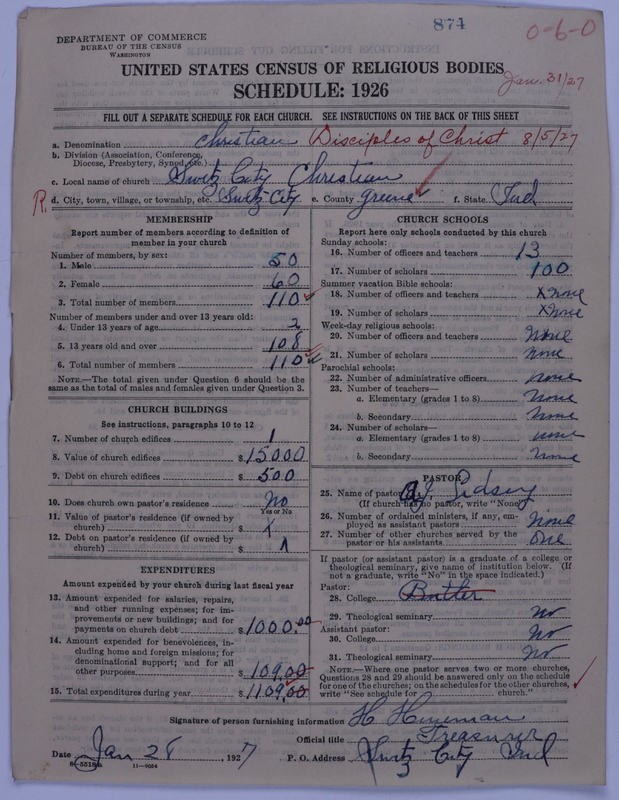 874
0-6-0
DEPARTMENT OF COMMERCE
BUREAU OF THE CENSUS
WASHINGTON
UNITED STATES CENSUS OF RELIGIOUS BODIES
Jan. 31/27
SCHEDULE: 1926
FILL OUT A SEPARATE SCHEDULE FOR EACH CHURCH. SEE INSTRUCTIONS ON THE BACK OF THIS SHEET
a. Denomination Christian Disciples of Christ 8/5/27
b. Division (Association, Conference, Diocese, Presbytery, Synod, etc.)
c. Local name of church Switz City Christian
R. d. City, town, village, or township, etc. Switz City e. County Greene f. State Ind
MEMBERSHIP
Report number of members according to definition of member in your church
Number of members, by sex:
1. Male 50
2. Female 60
3. Total number of members 110
Number of members under and over 13 years old:
4. Under 13 years of age 2
5. 13 years old and over 108
6. Total number of members 110
NOTE.—The total given under Question 6 should be the same as the total of males and females given under Question 3.
CHURCH BUILDINGS
See instructions, paragraphs 10 to 12
7. Number of church edifices 1
8. Value of church edifices $ 15000
9. Debt on church edifices $ 500
10. Does church own pastor's residence No
Yes or No
11. Value of pastor's residence (if owned by church) $ X
12. Debt on pastor's residence (if owned by church) $
EXPENDITURES
Amount expended by your church during last fiscal year
13. Amount expended for salaries, repairs, and other running expenses; for improvements or new buildings; and for payments on church debt $ 1000.00
14. Amount expended for benevolences, including home and foreign missions; for denominational support; and for all other purposes $ 109.00
15. Total expenditures during year $ 1109.00
CHURCH SCHOOLS
Report here only schools conducted by this church
Sunday schools:
16. Number of officers and teachers 13
17. Number of scholars 100
Summer vacation Bible schools:
18. Number of officers and teachers X none
19. Number of scholars X none
Week-day religious schools:
20. Number of officers and teachers None
21. Number of scholars none
Parochial schools:
22. Number of administrative officers none
23. Number of teachers—
a. Elementary (grades 1 to 8) None
b. Secondary None
24. Number of scholars—
a. Elementary (grades 1 to 8) none
b. Secondary none
PASTOR
25. Name of pastor
(If church has no pastor, write "None")
26. Number of ordained ministers, if any, employed as assistant pastors None
27. Number of other churches served by the pastor or his assistants One
If pastor (or assistant pastor) is a graduate of a college or theological seminary, give name of institution below. (If not a graduate, write "No" in the space indicated.)
Pastor:
28. College Butler
29. Theological seminary No
Assistant pastor:
30. College No
31. Theological seminary No
NOTE.—Where one pastor serves two or more churches, Questions 28 and 29 should be answered only on the schedule for one of the churches; on the schedules for the other churches, write "See schedule for ............ church."
Signature of person furnishing information H Hineman
Official title Treasurer
Date Jan 28, 1927 P. O. Address Switz City Ind
8—5518a 11—9054